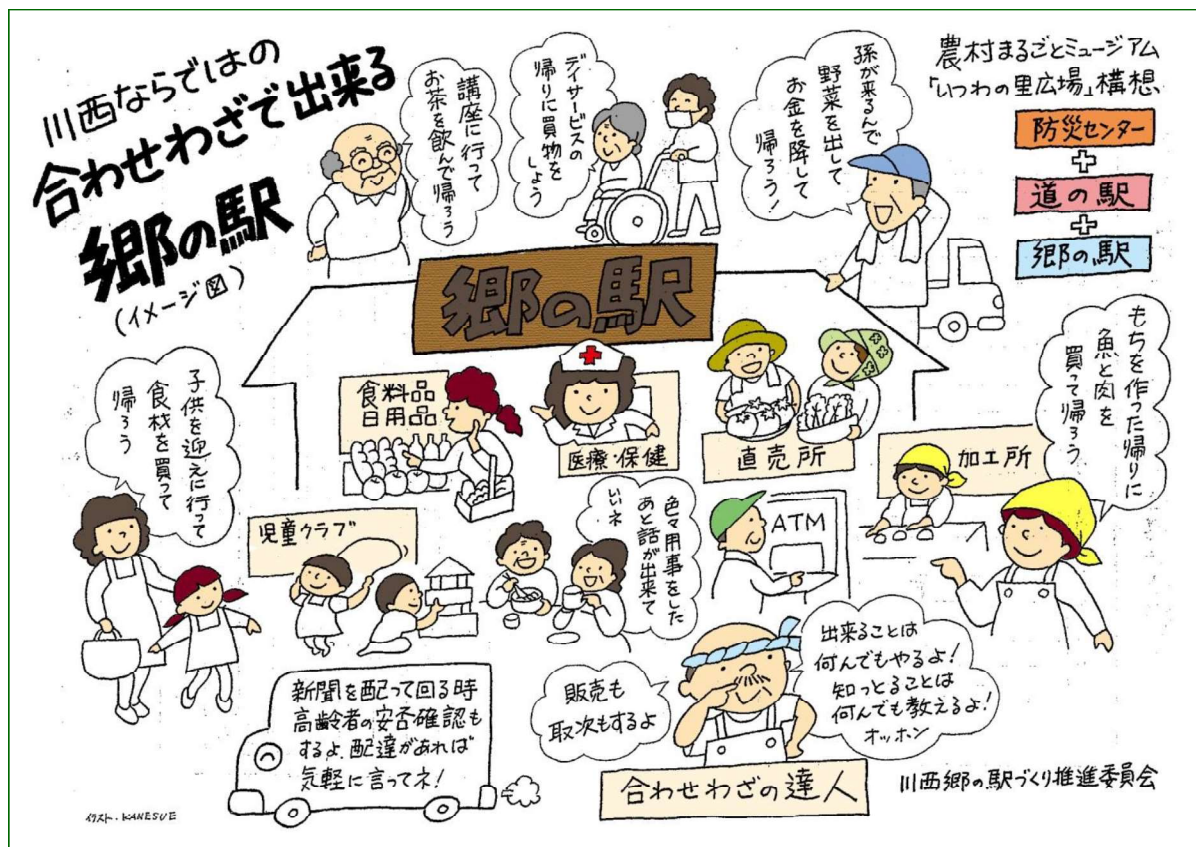 川西ならではの
合わせわざで出来る
郷の駅
(イメージ図)
講座に行って
お茶を飲んで帰ろう
デイサービスの
帰りに買物を
しよう
孫が来るんで
野菜を出して
お金を降して
帰ろう!
農村まるごとミュージアム
「いつわの里広場」構想
防災センター
+
道の駅
+
郷の駅
郷の駅
もちを作った帰りに
魚と肉を
買って帰ろう
子供を迎えに行って
食材を買って
帰ろう
食料品
日用品
医療・保健
直売所
加工所
児童クラブ
色々用事をした
あと話が出来て
いいネ
ATM
新聞を配って回る時
高齢者の安否確認も
するよ.配達があれば
気軽に言ってネ!
販売も
取次もするよ
出来ることは
何んでもやるよ!
知っとることは
何んでも教えるよ!
オッホン
合わせわざの達人
川西郷の駅づくり推進委員会
イラスト・KANESUE